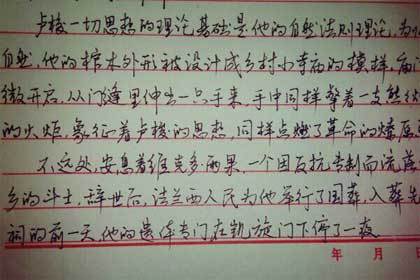 卢梭一切思想的理论基础是他的自然法则理论，为
自然，他的棺木外形被设计成乡村小寺庙的模样，庙门
微开启，从门缝里伸出一只手来，手中同样擎着一支熊
的火炬，象征着卢梭的思想，同样点燃了革命的燎原
不远处，安息着维克多雨果，一个因反抗专制而流落
乡的斗士，辞世后，法兰西人民为他举行了国葬，入葬先
祠的前一天，他的遗体专门在凯旋门下停了一夜
年 月